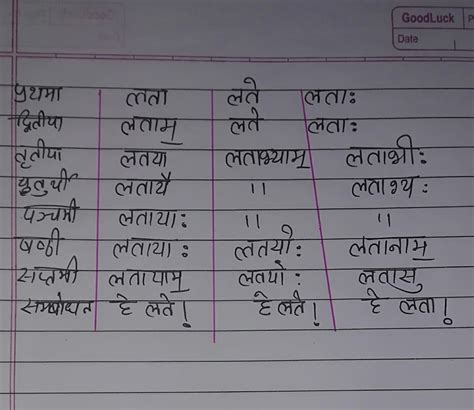 GoodLuck P
Date
प्रथमा लता लते लताः
द्वितीया लताम् लते लताः
तृतीया लतया लताभ्याम् लताभीः
चुतुर्थी लतायै " लताभ्यः
पञ्चमी लतायाः " "
षष्ठी लतायाः लतयोः लतानाम्
सप्तमी लतायाम् लतयोः लतासु
सम्बोधन हे लते! हे लते! हे लता!